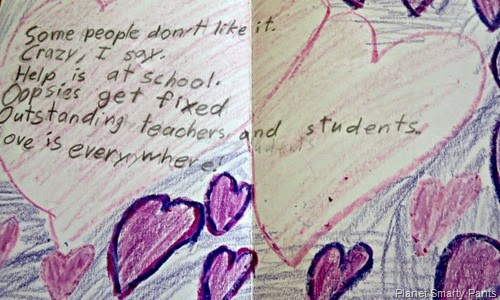 Some people don't like it.
Crazy, I say.
Help is at school.
Oopsies get fixed
Outstanding teachers and students.
ove is everywhere!
students
Planet Smarty Pants